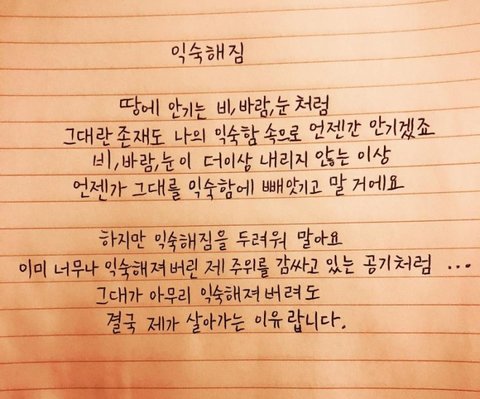 익숙해짐
땅에 안기는 비,바람,눈 처럼
그대란 존재도 나의 익숙함 속으로 언젠간 안기겠죠
비,바람,눈이 더이상 내리지 않는 이상
언젠가 그대를 익숙함에 빼앗기고 말 거에요
하지만 익숙해짐을 두려워 말아요
이미 너무나 익숙해져 버린 제 주위를 감싸고 있는 공기처럼 ...
그대가 아무리 익숙해져 버려도
결국 제가 살아가는 이유랍니다.